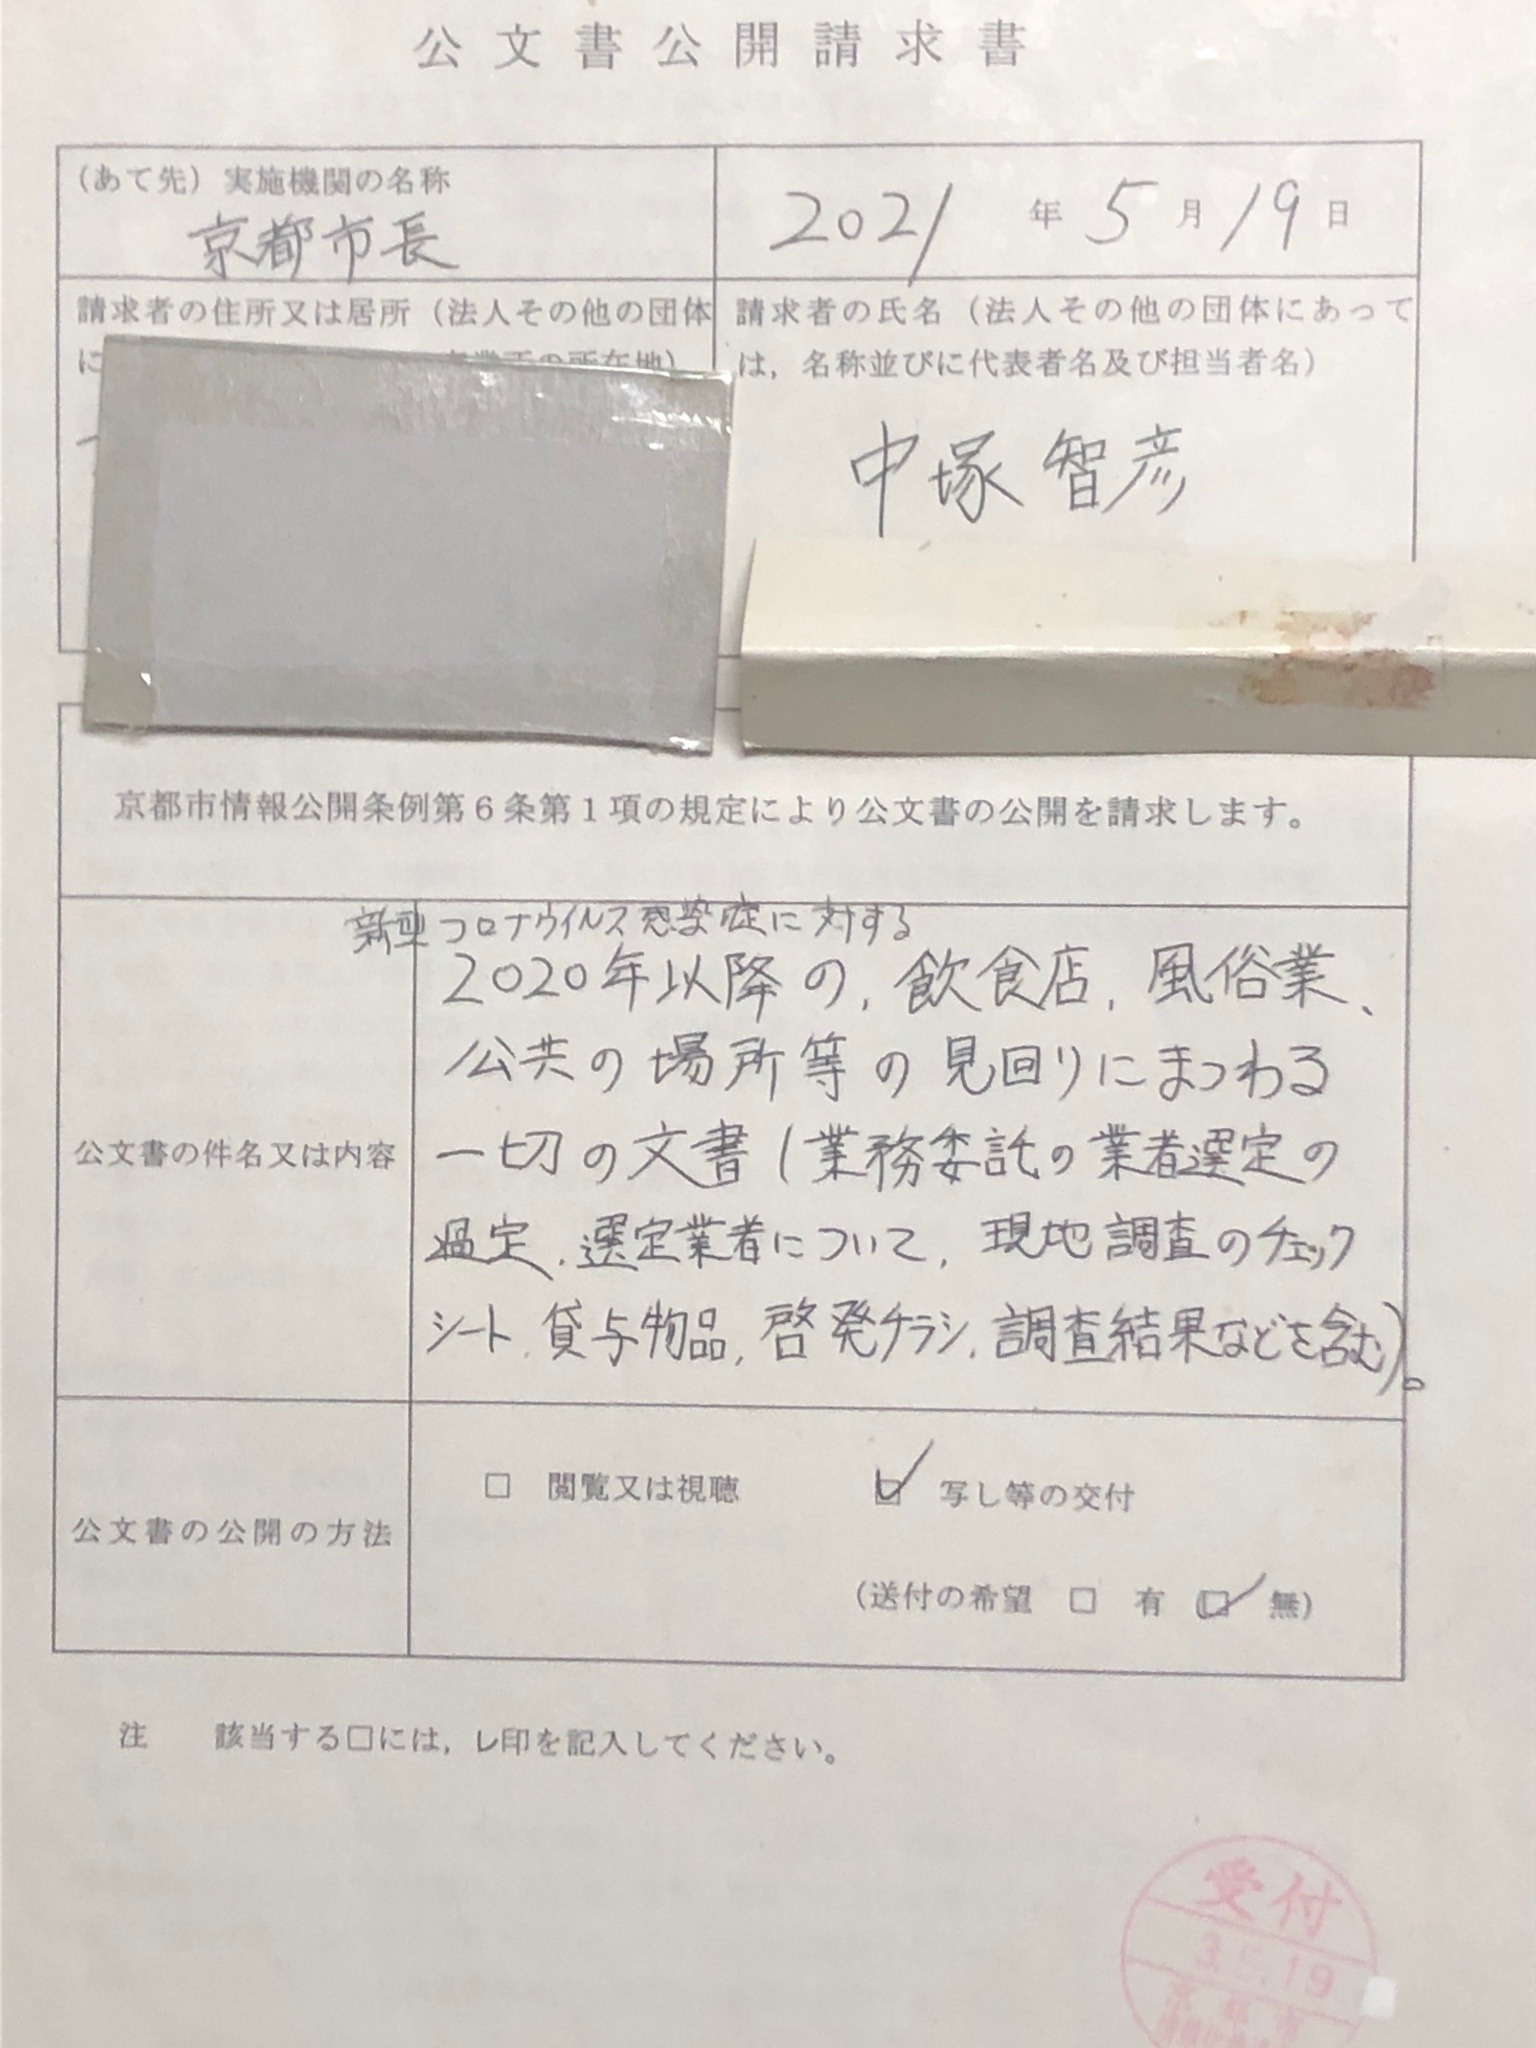 公文書公開請求書
(あて先)実施機関の名称
京都市長
2021年5月19日
請求者の住所又は居所(法人その他の団体
に
所在地)
請求者の氏名(法人その他の団体にあって
は,名称並びに代表者名及び担当者名)
中塚智彦
京都市情報公開条例第6条第1項の規定により公文書の公開を請求します。
公文書の件名又は内容
新型コロナウイルス感染症に対する
2020年以降の,飲食店,風俗業、
公共の場所等の見回りにまつわる
一切の文書(業務委託の業者選定の
過定,選定業者について,現地調査のチェック
シート,貸与物品,啓発チラシ,調査結果などを含む)。
公文書の公開の方法
□ 閲覧又は視聴
☑ 写し等の交付
(送付の希望 □ 有 ☑ 無)
注 該当する□には,レ印を記入してください。
受付
3.5.19
京都市